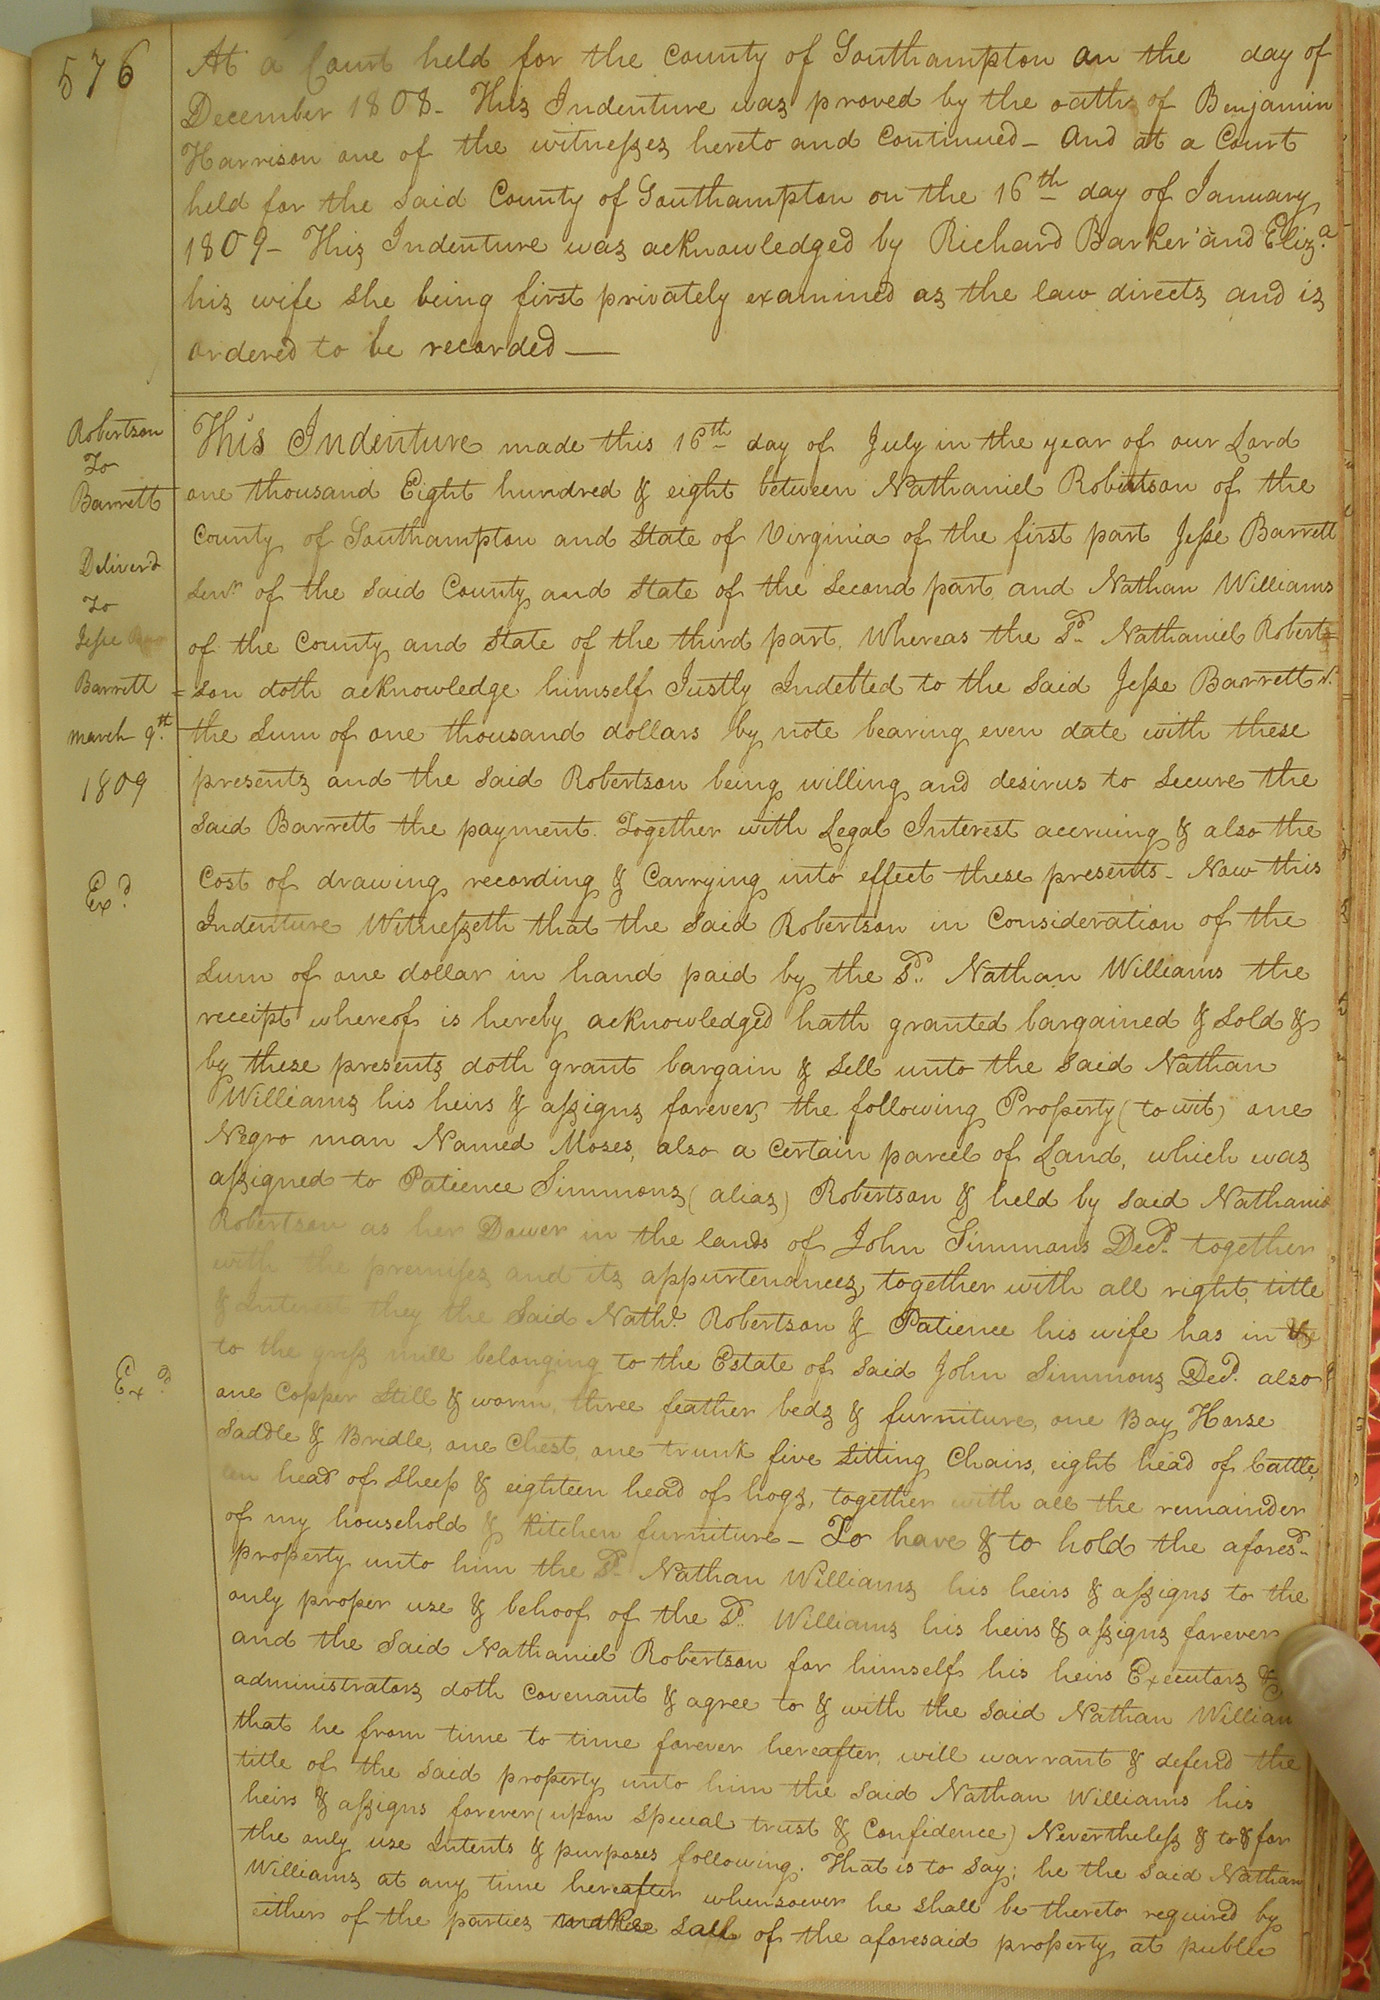 576
At a Court held for the County of Southampton on the day of
December 1808 - This Indenture was proved by the oath of Benjamin
Harrison one of the witnesses hereto and Continued - and at a Court
held for the said County of Southampton on the 16th day of January
1809 - This Indenture was acknowledged by Richard Barker and Eliza
his wife she being first privately examined as the law directs and is
ordered to be recorded —
Robertson
To
Barrett
Deliverd
To
Jesse
Barrett
march 9th
1809
Exd
Exd
This Indenture made this 16th day of July in the year of our Lord
one thousand Eight hundred & eight between Nathaniel Robertson of the
County of Southampton and State of Virginia of the first part Jesse Barrett
Senr of the said County and State of the Second part and Nathan Williams
of the County and State of the third part. Whereas the Sd. Nathaniel Robert=
=son doth acknowledge himself Justly Indebted to the said Jesse Barrett Sr.
the Sum of one thousand dollars by note bearing even date with these
presents and the said Robertson being willing and desirus to Secure the
said Barrett the payment. Together with Legal Interest accruing & also the
Cost of drawing recording & Carrying into effect these presents - Now this
Indenture Witnesseth that the said Robertson in Consideration of the
Sum of one dollar in hand paid by the Sd. Nathan Williams the
receipt whereof is hereby acknowledged hath granted bargained & Sold &
by these presents doth grant bargain & Sell unto the said Nathan
Williams his heirs & assigns forever, the following Property (to wit) one
Negro man Named Moses, also a Certain parcel of Land, which was
assigned to Patience Simmons (alias) Robertson & held by said Nathaniel
Robertson as her Dower in the lands of John Simmons Decd. together
with the premises and its appurtenances, together with all right, title
& Interest they the said Nathl. Robertson & Patience his wife has in
to the griss mill belonging to the Estate of said John Simmons Decd. also
one Copper Still & worm, three feather beds & furniture, one Bay Horse
Saddle & Bridle, one Chest, one trunk five Sitting Chairs, eight head of Cattle,
ten head of Sheep & eighteen head of hogs, together with all the remainder
of my household & Kitchen furniture - To have & to hold the aforesd.
property unto him the Sd. Nathan Williams his heirs & assigns to the
only proper use & behoof of the Sd. Williams his heirs & assigns forever
and the said Nathaniel Robertson for himself his heirs Executors &
administrators doth Covenant & agree to & with the said Nathan William
that he from time to time forever hereafter, will warrant & defend the
title of the said property unto him the said Nathan Williams his
heirs & assigns forever (upon Special trust & Confidence) Nevertheless & to & for
the only use Intents & purposes following. That is to say; he the said Nathan
Williams at any time hereafter whensoever he shall be thereto required by
either of the parties make sale of the aforesaid property at public